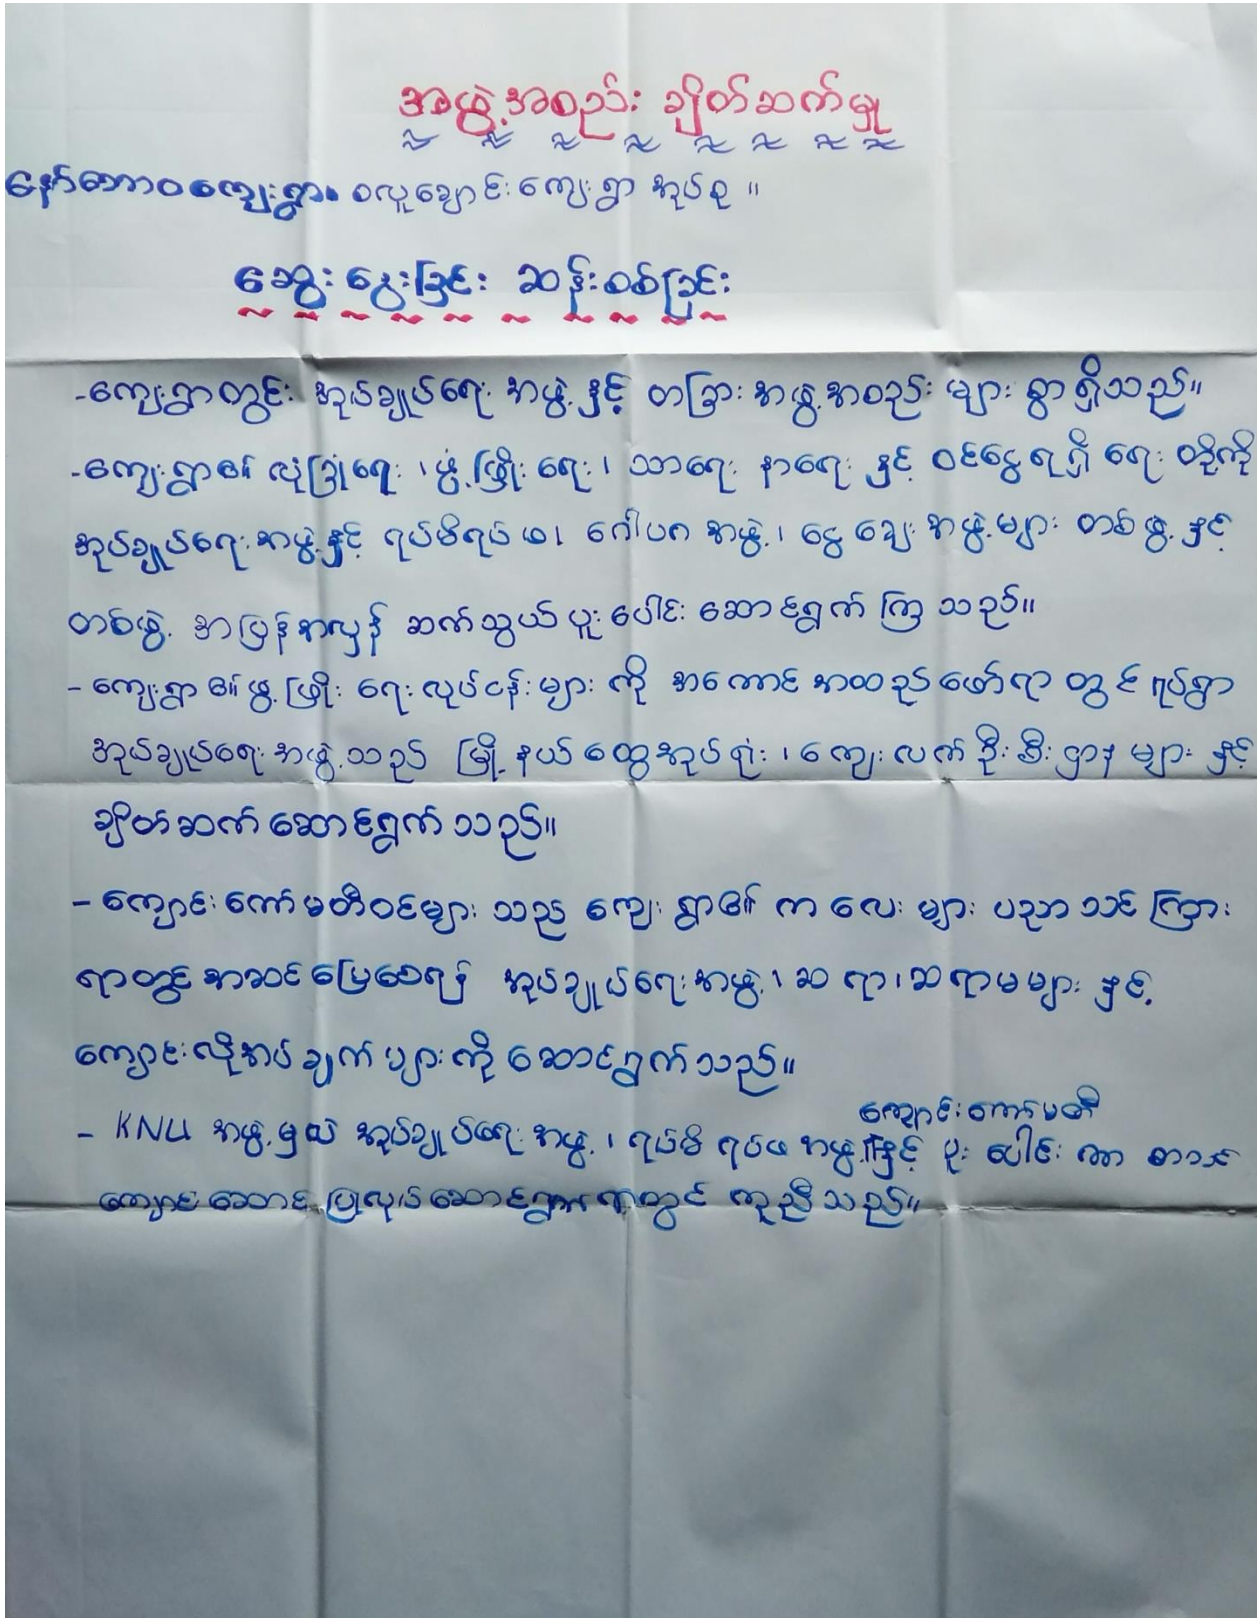 အဖွဲ့အစည်း ချိတ်ဆက်မှု
နော်တာဝကျေးရွာ၊ ဝလူချောင်းကျေးရွာ အုပ်စု ။
ဆွေးနွေးခြင်း ဆန်းစစ်ခြင်း
-ကျေးရွာတွင်း အုပ်ချုပ်ရေး အဖွဲ့ နှင့် တခြား အဖွဲ့အစည်း များ စွာ ရှိသည်။
-ကျေးရွာ၏ လုံခြုံရေး ၊ ဖွံ့ဖြိုး ရေး ၊ သာရေး နာရေး နှင့် ဝင်ငွေ ရရှိ ရေး တို့ကို
အုပ်ချုပ်ရေး အဖွဲ့ နှင့် ရပ်မိရပ်ဖ ၊ ဂေါပက အဖွဲ့ ၊ ငွေ ချေး အဖွဲ့ များ တစ်ဖွဲ့ နှင့်
တစ်ဖွဲ့ အပြန်အလှန် ဆက်သွယ် ပူးပေါင်း ဆောင်ရွက် ကြ သည်။
- ကျေးရွာ ၏ ဖွံ့ဖြိုး ရေး လုပ်ငန်း များ ကို အကောင်အထည်ဖော်ရာ တွင် ရပ်ရွာ
အုပ်ချုပ်ရေး အဖွဲ့ သည် မြို့နယ် ထွေအုပ်ရုံး ၊ ကျေးလက် ဦးစီး ဌာန များ နှင့်
ချိတ်ဆက် ဆောင်ရွက် သည်။
- ကျောင်း ကော်မတီဝင်များ သည် ကျေးရွာ၏ က လေး များ ပညာ သင် ကြား
ရာတွင် အဆင်ပြေစေရန် အုပ်ချုပ်ရေး အဖွဲ့ ၊ ဆ ရာ ၊ ဆ ရာမများ နှင့်
ကျောင်းလိုအပ် ချက် များ ကို ဆောင်ရွက် သည်။
ကျောင်း ကော်မတီ
- KNU အဖွဲ့ မှလဲ အုပ်ချုပ်ရေး အဖွဲ့ ၊ ရပ်မိ ရပ်ဖ အဖွဲ့ နှင့် ပူး ပေါင်း ကာ စာသင်
ကျောင်း ဆောင် ပြုလုပ် ဆောင်ရွက် ရာတွင် ကူညီ သည်။